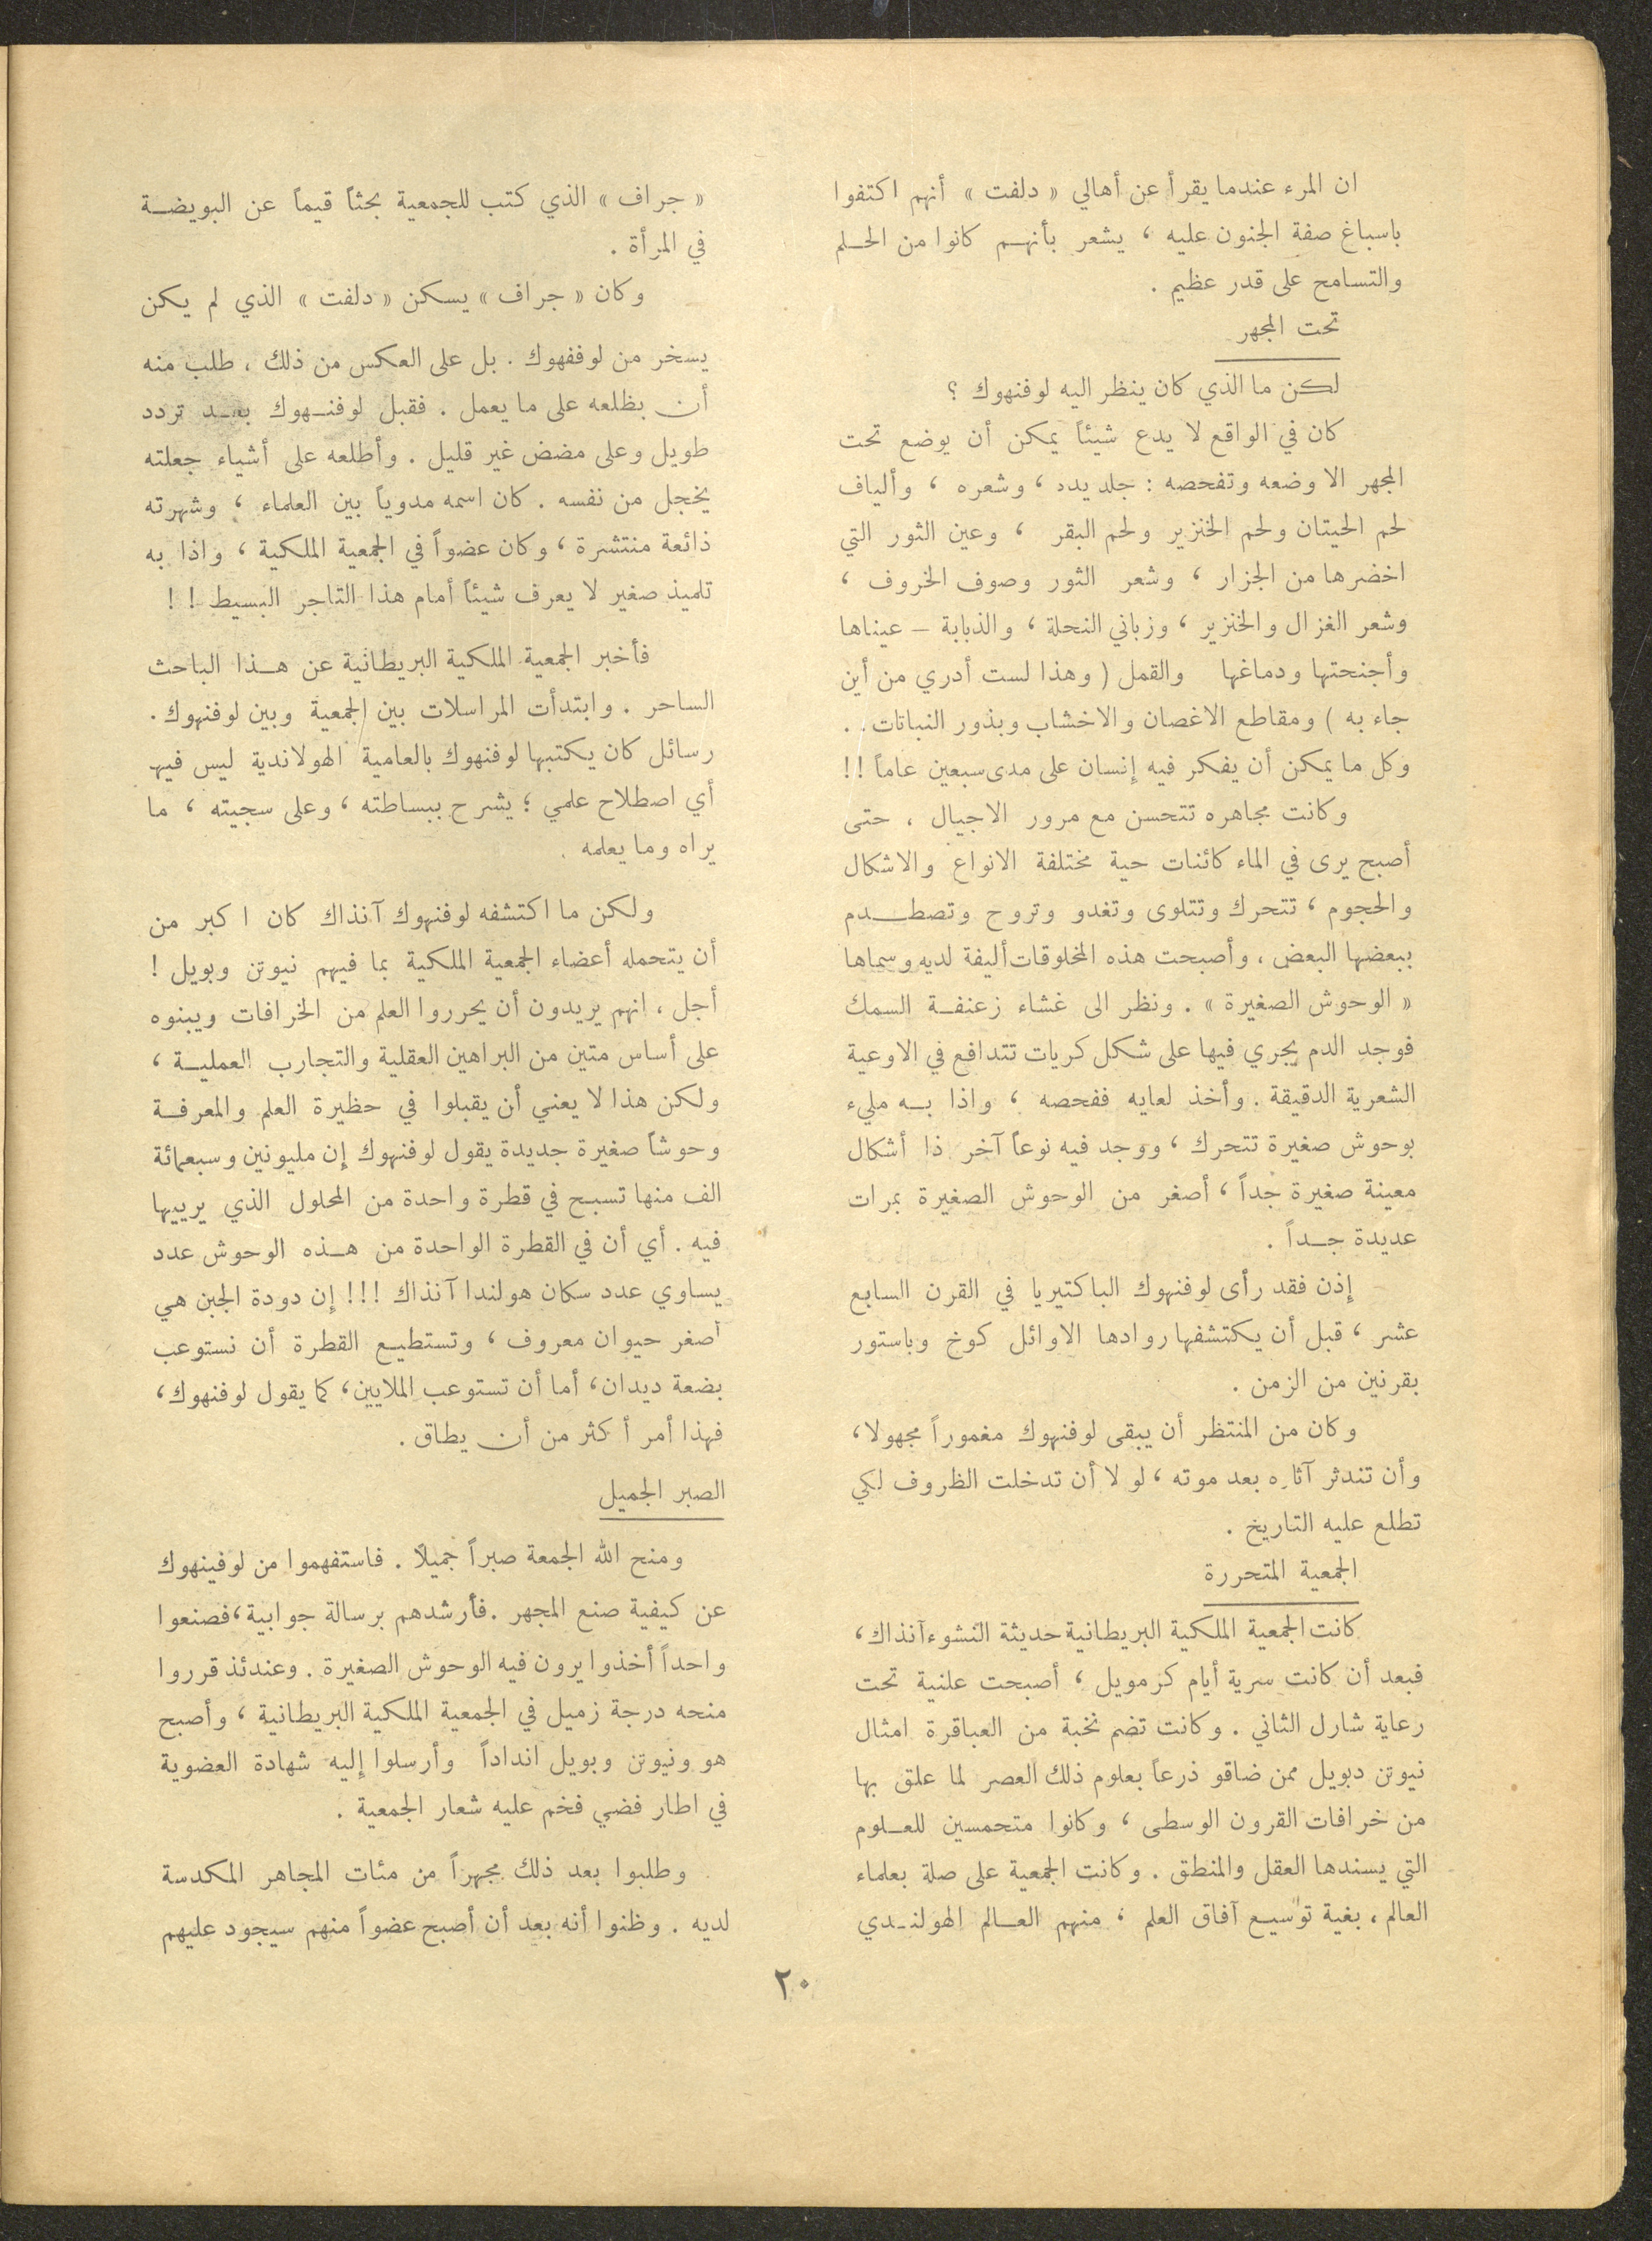 ان المرء عندما يقرأ عن أهالي « دلفت » أنهم اكتفوا
باسباغ صفة الجنون عليه ، يشعر بأنهم كانوا من الحلم
والتسامح على قدر عظيم .
تحت المجهر
لكن ما الذي كان ينظر اليه لوفنهوك ؟
كان في الواقع لا يدع شيئاً يمكن أن يوضع تحت
المجهر الا وضعه وتفحصه : جلد يده ، وشعره ، وألياف
لحم الحيتان ولحم الخنزير ولحم البقر ، وعين الثور التي
اخضرها من الجزار ، وشعر الثور وصوف الخروف ،
وشعر الغزال والخنزير ، وزباني النحلة ، والذبابة – عيناها
وأجنحتها ودماغها والقمل ( وهذا لست أدري من أين
جاء به ) ومقاطع الاغصان والاخشاب وبذور النباتات . .
وكل ما يمكن أن يفكر فيه إنسان على مدى سبعين عاماً !!
وكانت مجاهره تتحسن مع مرور الاجيال ، حتى
أصبح يرى في الماء كائنات حية مختلفة الانواع والاشكال
والحجوم ، تتحرك وتتلوى وتغدو وتروح وتصطدم
ببعضها البعض ، وأصبحت هذه المخلوقات أليفة لديه وسماها
« الوحوش الصغيرة » . ونظر الى غشاء زعنفة السمك
فوجد الدم يجري فيها على شكل كريات تتدافع في الاوعية
الشعرية الدقيقة . وأخذ لعابه ففحصه ، واذا به مليء
بوحوش صغيرة تتحرك ، ووجد فيه نوعاً آخر ذا أشكال
معينة صغيرة جداً ، أصغر من الوحوش الصغيرة بمرات
عديدة جداً .
إذن فقد رأى لوفنهوك الباكتيريا في القرن السابع
عشر ، قبل أن يكتشفها روادها الاوائل كوخ وباستور
بقرنين من الزمن .
وكان من المنتظر أن يبقى لوفنهوك مغموراً مجهولا ،
وأن تندثر آثاره بعد موته ، لو لا أن تدخلت الظروف لكي
تطلع عليه التاريخ .
الجمعية المتحررة
كانت الجمعية الملكية البريطانية حديثة النشوء آنذاك ،
فبعد أن كانت سرية أيام كرمويل ، أصبحت علنية تحت
رعاية شارل الثاني . وكانت تضم نخبة من العباقرة امثال
نيوتن دبويل ممن ضاقو ذرعاً بعلوم ذلك العصر لما علق بها
من خرافات القرون الوسطى ، وكانوا متحمسين للعلوم
التي يسندها العقل والمنطق . وكانت الجمعية على صلة بعلماء
العالم ، بغية توسيع آفاق العلم ، منهم العالم الهولندي
« جراف » الذي كتب للجمعية بحثاً قيماً عن البويضة
في المرأة .
وكان « جراف » يسكن « دلفت » الذي لم يكن
يسخر من لوففهوك . بل على العكس من ذلك ، طلب منه
أن بظلعه على ما يعمل . فقبل لوفنهوك بعد تردد
طويل وعلى مضض غير قليل . وأطلعه على أشياء جعلته
يخجل من نفسه . كان اسمه مدوياً بين العلماء ، وشهرته
ذائعة منتشرة ، وكان عضواً في الجمعية الملكية ، واذا به
تلميذ صغير لا يعرف شيئاً أمام هذا التاجر البسيط ! !
فأخبر الجمعية الملكية البريطانية عن هذا الباحث
الساحر . وابتدأت المراسلات بين الجمعية وبين لوفنهوك .
رسائل كان يكتبها لوفنهوك بالعامية الهولاندية ليس فيها
أي اصطلاح علمي ؛ يشرح ببساطته ، وعلى سجيته ، ما
يراه وما يعلمه .
ولكن ما اكتشفه لوفنهوك آنذاك كان اكبر من
أن يتحمله أعضاء الجمعية الملكية بما فيهم نيوتن وبويل !
أجل ، انهم يريدون أن يحرروا العلم من الخرافات ويبنوه
على أساس متين من البراهين العقلية والتجارب العملية ،
ولكن هذا لا يعني أن يقبلوا في حظيرة العلم والمعرفة
وحوشاً صغيرة جديدة يقول لوفنهوك إن مليونين وسبعمائة
الف منها تسبح في قطرة واحدة من المحلول الذي يربيها
فيه . أي أن في القطرة الواحدة من هذه الوحوش عدد
يساوي عدد سكان هولندا آنذاك !!! إن دودة الجبن هي
أصغر حيوان معروف ، وتستطيع القطرة أن نستوعب
بضعة ديدان ، أما أن تستوعب الملايين ، كما يقول لوفنهوك ،
فهذا أمر أكثر من أن يطاق .
الصبر الجميل
ومنح الله الجمعة صبراً جميلاً . فاستفهموا من لوفينهوك
عن كيفية صنع المجهر . فأرشدهم برسالة جوابية ، فصنعوا
واحداً أخذوا يرون فيه الوحوش الصغيرة . وعندئذ قرروا
منحه درجة زميل في الجمعية الملكية البريطانية ، وأصبح
هو ونيوتن وبويل انداداً وأرسلوا إليه شهادة العضوية
في اطار فضي فخم عليه شعار الجمعية .
وطلبوا بعد ذلك مجهراً من مئات المجاهر المكدسة
لديه . وظنوا أنه بعد أن أصبح عضواً منهم سيجود عليهم
٢٠